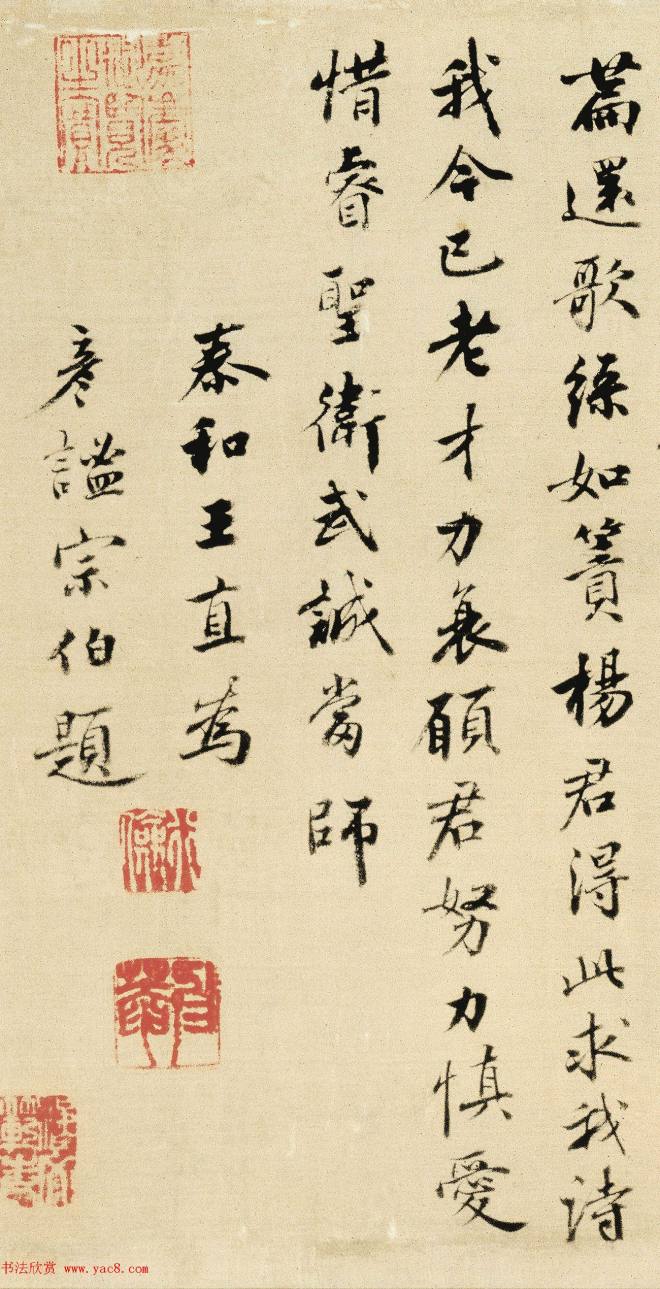 篇還歌綠如簀楊君得此求我詩
我今已老才力衰願君努力慎愛
惜睿聖衛武誠當師
泰和王直為
彥謐宗伯題
嘉慶御覽之寶
書法欣赏 www.yac8.com